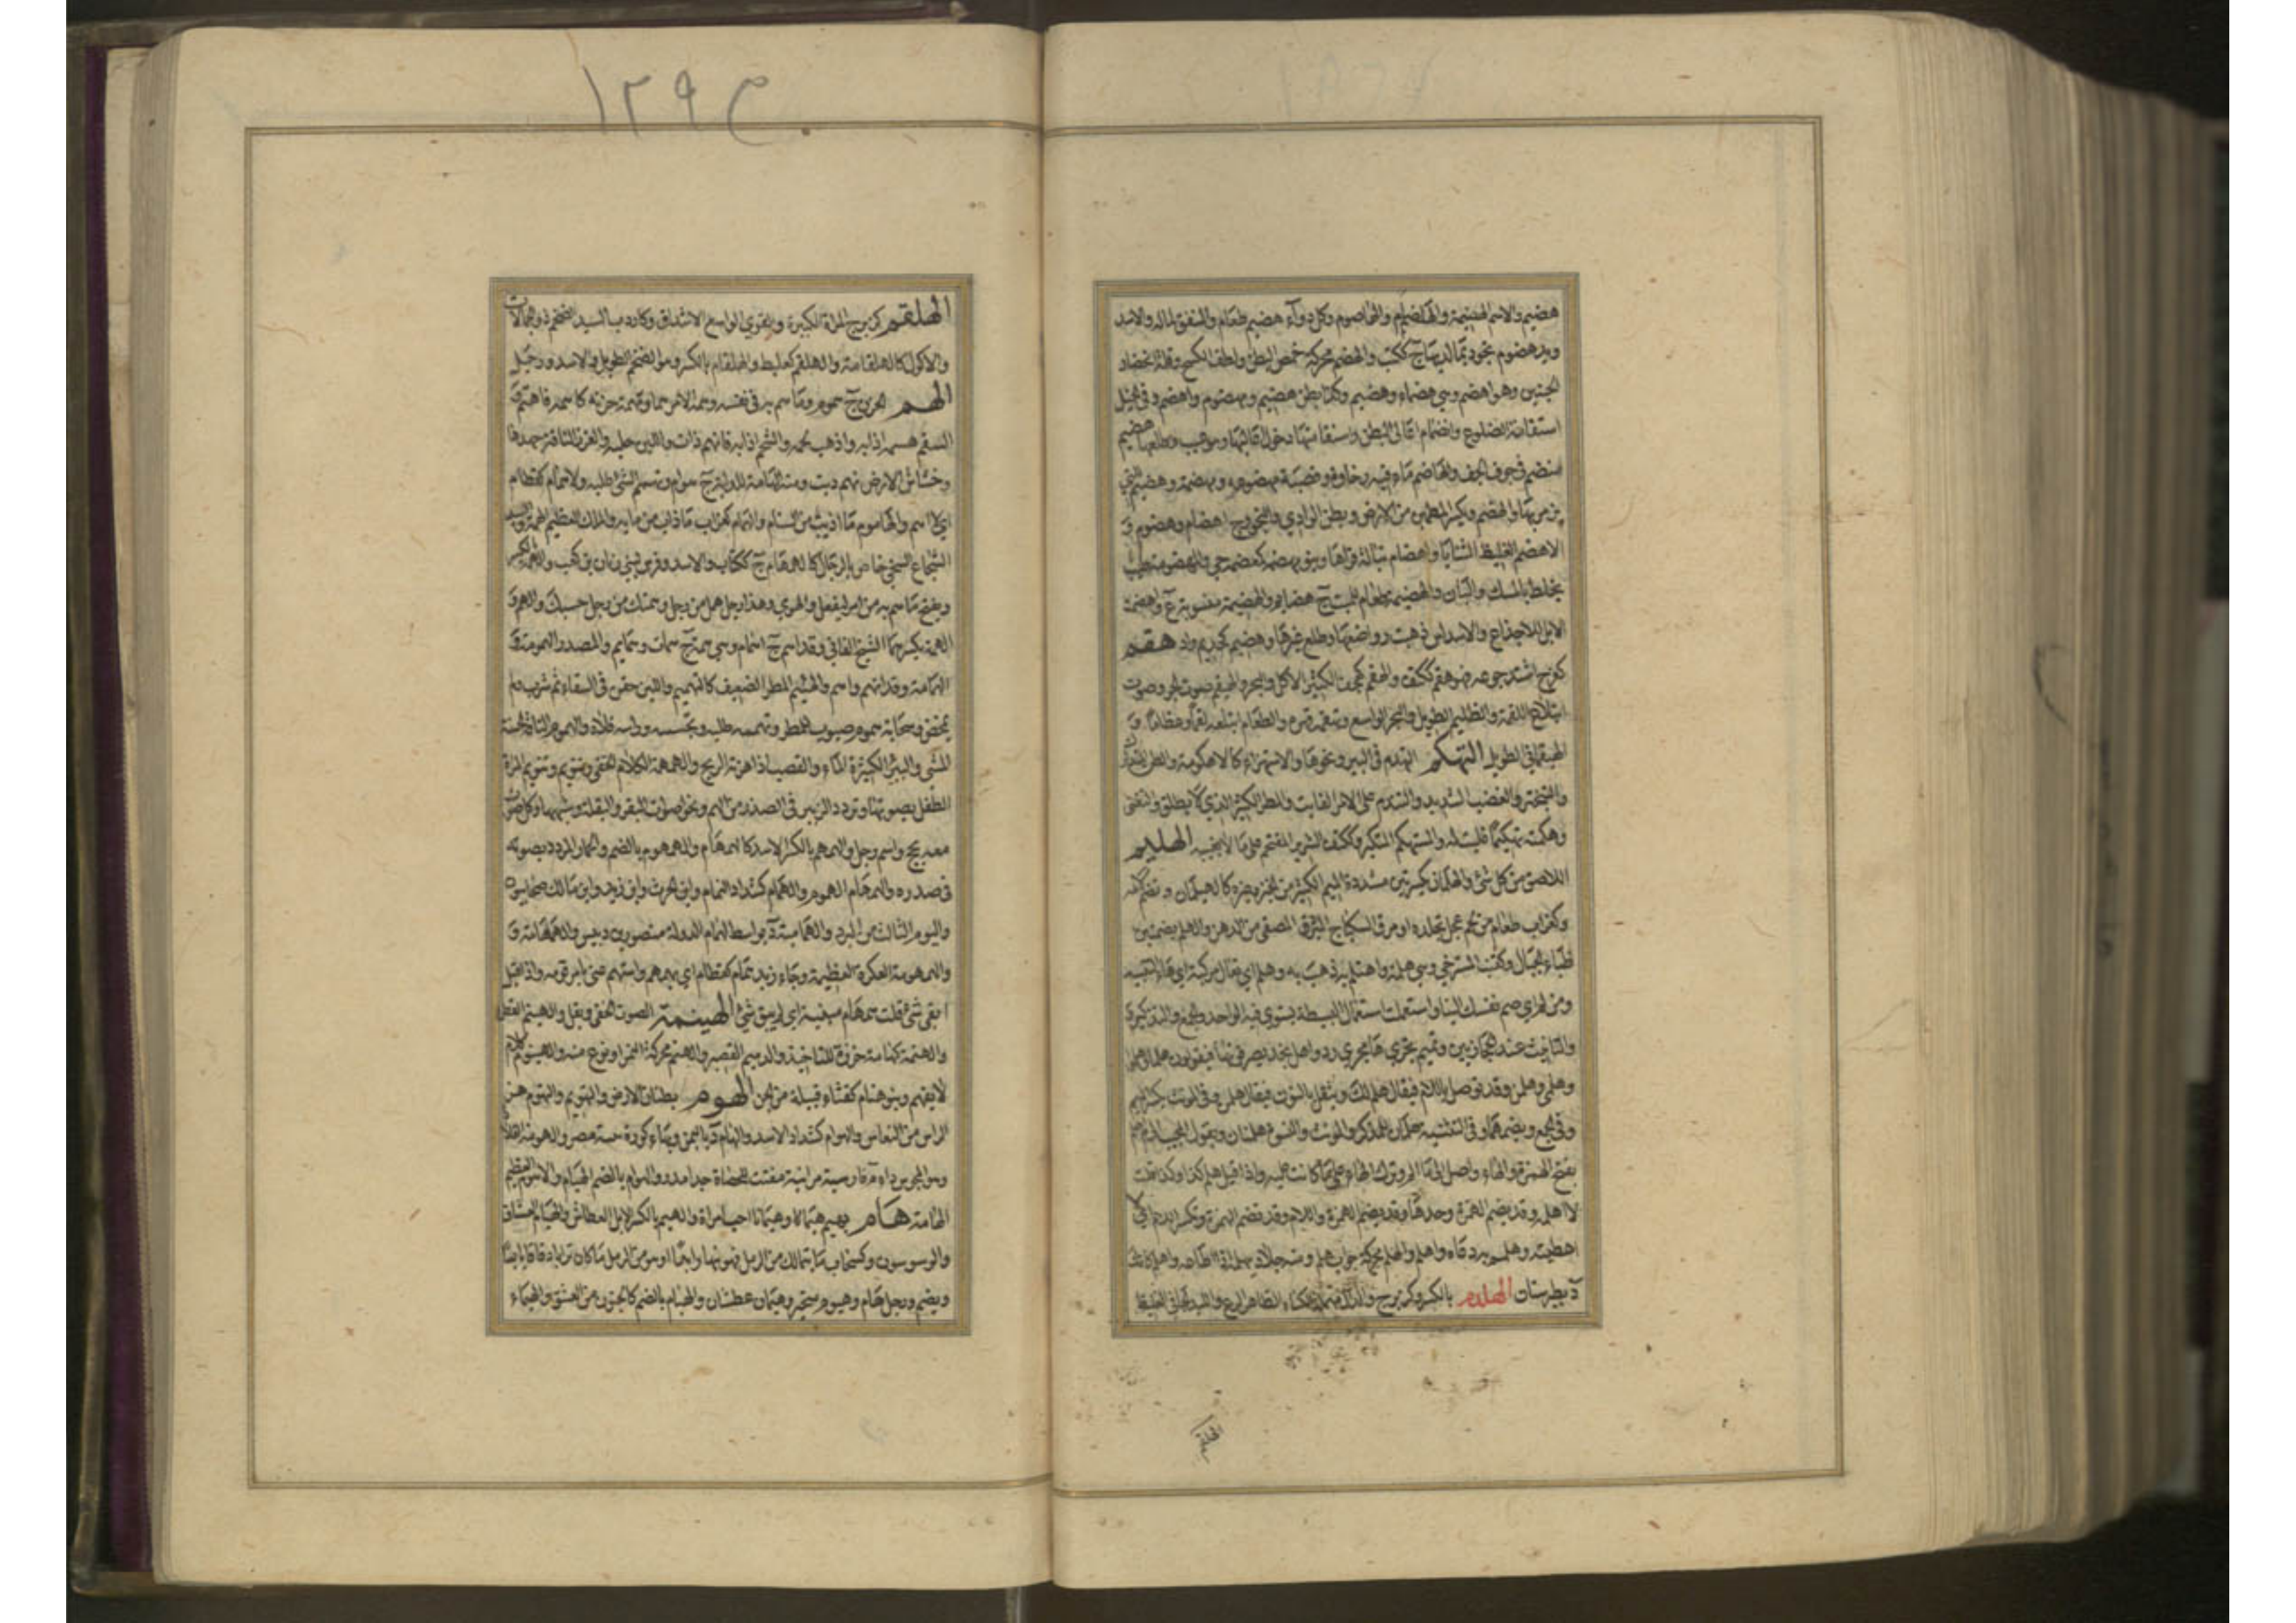 هضيم والاسم الهضيمة والهاضم والهاضوم وكل دواء هضم طعاما والمنفق لماله والاسد
ويد هضوم تجود بما لديها ج ككتب والهضم محركة خمص البطن ولطف الكشح وقلة انجفار
الجنبين وهو اهضم وهي هضماء وهضيم وكذا بطن هضيم ومهضوم واهضم وفي الخيل
استقامة الضلوع وانضمام اعالي البطن واستقامتها دخول اعاليها وهو عيب وطلعها هضيم
منضم في جوف الجف والهاضم ماء فيه رخاوة وقصبة مهضومة ومهضمة وهضيم للتي
يزمر بها والهضم ويكسر المطمئن من الارض وبطن الوادي والبخور ج اهضام وهضوم و
الاهضم الغليظ الثنايا واهضام تبالة قراها وبنو مهضمة كمعظمة حي والمهضومة طيب
يخلط بالمسك والبان والهضيمة طعام للميت ج هضايم والهضيمية منسوبة ع واهضمت
الابل للاجذاع والاسداس ذهبت رواضعها وطلع غيرها وهضيم كحذيم واد هقم
كفرح اشتد جوعه فهو هقم ككتف والهقم كهجف الكثير الاكل والبحر والهيقم صوت البحر وصوت
ابتلاع اللقمة والظليم الطويل والبحر الواسع وتهقمه قهره والطعام ابتلعه لقما عظاما و
الهيقماني الطويل التهكم التهدم في البير ونحوها والاستهزاء كالاهكومة والطعن المتدارك
والتبختر والغضب الشديد والتندم على الامر الفايت والمطر الكثير الذي لا يطاق والتغني
وهكمته تهكيما غنيت له والمستهكم المتكبر وككتف الشرير المقتحم على ما لا يعنيه الهليم
اللاصق من كل شئ والهلمان بكسرتين مشددة الميم الكثير من الخير وغيره كالهيلمان وتضم لامه
وكغراب طعام من لحم عجل بجلده او مرق السكباج المبرد المصفى من الدهن والهلم بضمتين
ظباء الجبال وككتف المسترخي وهي هلمة واهتلم به ذهب به وهلم اي تعال مركبة من ها التنبيه
ومن لم اي ضم نفسك الينا واستعملت استعمال البسيطة يستوي فيه الواحد والجمع والتذكير و
والتانيث عند الحجازيين وتميم تجري ها مجرى رد واهل نجد يصرفونها فيقولون هلما هلموا
وهلمي وهلمن وقد توصل باللام فيقال هلم لك وتثقل بالنون فيقال هلمن وفي المونث بكسر الميم
وفي الجمع بضمها وفي التثنية هلمان للمذكر والمونث وللنسوة هلممنان ويقول المجيب لا اهلم
بفتح الهمزة والهاء واصل الى ما الم وترك الهاء على ما كانت عليه واذا قيل هلم كذا وكذا قلت
لا اهلمه وقد يضم الهمزة وحدها وقد يضم الهمزة واللام وقد تضم الهمزة وتكسر اللام اي لا
اعطيكه وهلم به دعاه
د بطبرستان الهلدم بالكسر وكزبرج
الهلقم كزبرج المراة الكبيرة والقوي الواسع الاشداق وكاردب السيد الضخم ذو الحمالات
والاكول كالهلقامة والهلقم كعلبط والهلقام بالكسر وهو الضخم الطويل والاسد ورجل
الهم الحزن ج هموم وما هم به في نفسه وهمه الامر هما ومهمة حزنه كاهمه فاهتم و
السقم جسمه اذابه واذهب لحمه والشحم اذابه فانهم ذاب واللبن حلبه والغزر الناقة جهدها
وخشاش الارض تهم دبت ومنه الهامة للدابة ج هوام وتهمم الشئ طلبه ولا همام كقطام
اي لا اهم والهاموم ما اذيب من السنام والهمام كغراب ما ذاب منه والملك العظيم الهمة والسيد
الشجاع السخي خاص بالرجال كالهمهام ج ككتاب والاسد وفرس لبني زبان بن كعب والهمة بالكسر
ويفتح ما هم به من امر ليفعل والهوى وهذا رجل همك من رجل وهمتك من رجل حسبك والهم و
الهمة بكسرهما الشيخ الفاني وقد اهم ج اهمام وهي همة ج همات وهمايم والمصدر الهمومة و
الهمامة وقد انهم واهم والهميم المطر الضعيف كالتهميم واللبن حقن في السقاء ثم شرب ولم
يمخض وسحابة هموم صبوب للمطر وتهممه طلبه وتجسسه وراسه فلاه والهموم الناقة الحسنة
المشي والبئر الكثيرة الماء والقصب اذا هزته الريح والهمهمة الكلام الخفي وتنويم المراة
الطفل بصوتها وتردد الزئير في الصدر من الهم ونحو اصوات البقر والفيلة وشبهها وكل صوت
معه بحح واسم رجل والهمهم بالكسر الاسد كالهمهام والهمهوم بالضم والحمار المردد بصوته
في صدره والهمهام الهموم والهمام كشداد النمام وابن الحرث وابن زيد وابن مالك صحابيون
واليوم الثالث من البرد والهمامية د بواسط لهمام الدولة منصور بن دبيس والهمهامة و
والهمهومة العكرة العظيمة وجاء زيد همام كقطام اي يهمهم واستهم عني بامر قومه واذا قيل
ابقي شئ قلت همهام مبنية اي لم يبق شئ الهينمة الصوت الخفي وبقل والهينم القطن
والهنمة كهمزة خرزة للتاخيذ والدميم القصير والهنم محركة التمر او نوع منه والهينوم كلام
لا يفهم وبنو هنام كقثاء قبيلة من الجن الهوم بطنان الارض والتهويم والتهوم هز
الراس من النعاس والهوام كشداد الاسد والهام ة باليمن وبهاء كورة بمصر والهومة الفلاة
وهوم المجوس دواء م فارسية مرانية مفتتة للحصاة جدا مدر والهوام بالضم الهيام والاهوم العظيم
الهامة هام يهيم هيما وهيمانا احب امراة والهيم بالكسر الابل العطاش والهيام العشاق
والموسوسون وكسحاب ما لا يتمالك من الرمل فهو ينهار ابدا او هو من الرمل ما كان ترابا دقاقا يابسا
ويضم ورجل هايم وهيوم متحير وهيمان عطشان والهيام بالضم كالجنون من العشق والهيماء
١٢٩٣
الهلقم